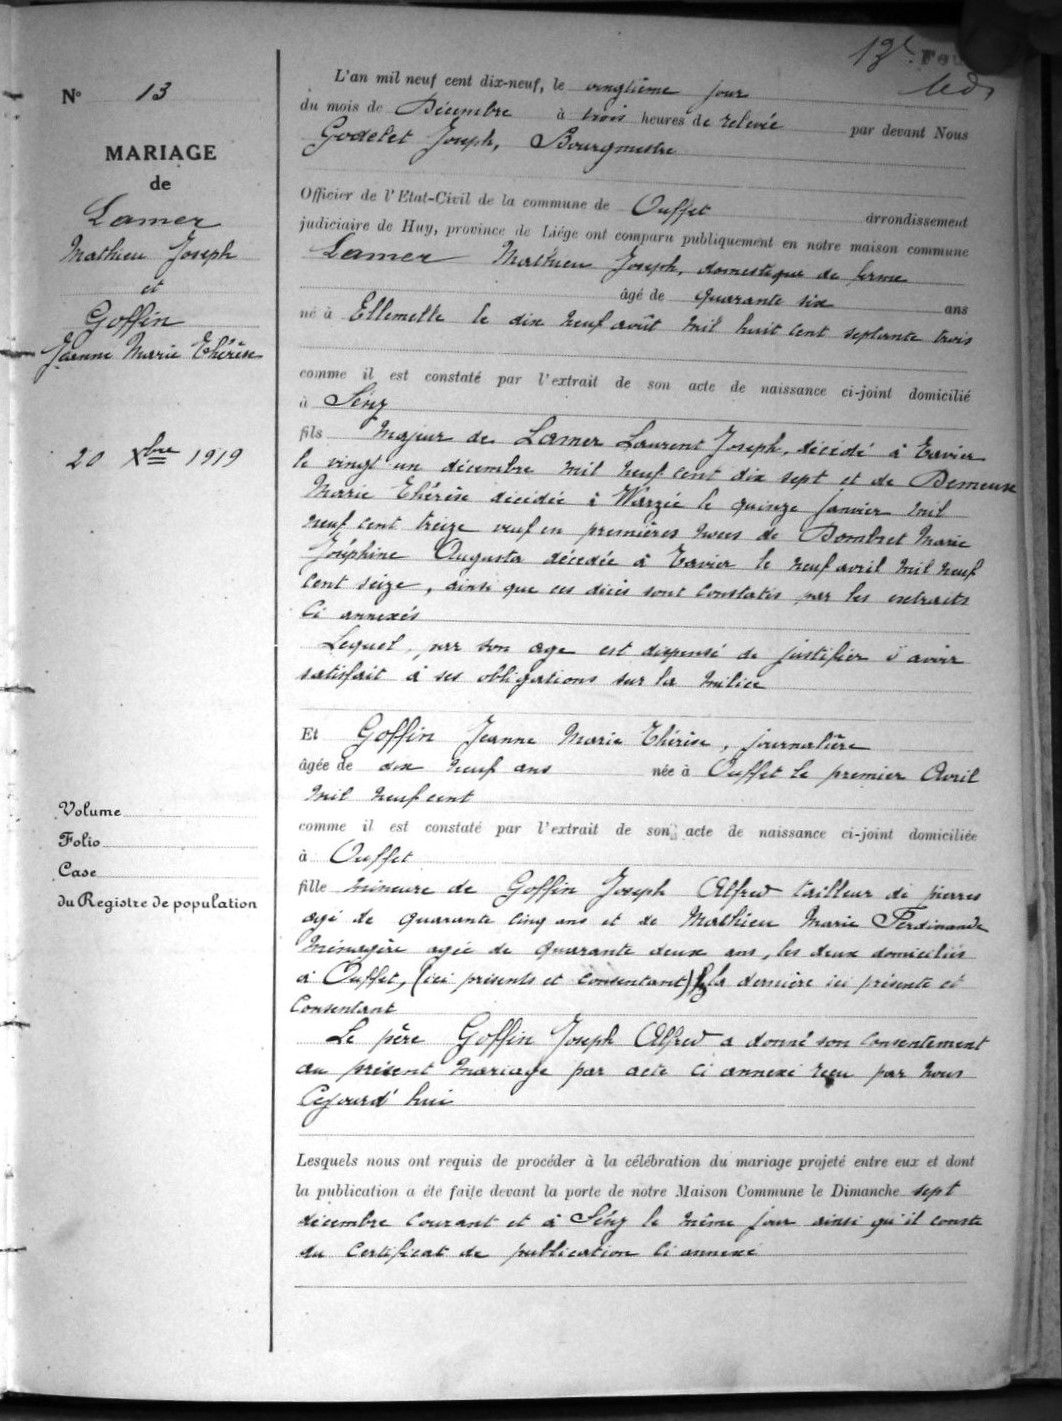 13e Feu
N° 13
MARIAGE
de
Lamer
Mathieu Joseph
et
Goffin
Jeanne Marie Thérèse
20 Xbre 1919
Volume
Folio
Case
du Registre de population
L'an mil neuf cent dix-neuf, le vingtième jour
du mois de Décembre à trois heures de relevée par devant Nous
Godelet Joseph, Bourgmestre
Officier de l'Etat-Civil de la commune de Ouffet arrondissement
judiciaire de Huy, province de Liége ont comparu publiquement en notre maison commune
Lamer Mathieu Joseph, domestique de ferme
âgé de quarante six ans
né à Ellemelle le dix neuf août mil huit cent septante trois
comme il est constaté par l'extrait de son acte de naissance ci-joint domicilié
à Seny
fils majeur de Lamer Laurent Joseph, décédé à Tavier
le vingt un décembre mil neuf cent dix sept et de Demeuse
Marie Thérèse décédée à Warzée le quinze janvier mil
neuf cent treize veuf en premières noces de Dombret Marie
Joséphine Augusta décédée à Tavier le neuf avril mil neuf
cent seize, ainsi que ces décès sont constatés par les extraits
ci annexés
Lequel, par son age est dispensé de justifier d'avoir
satisfait à ses obligations sur la milice
Et Goffin Jeanne Marie Thérèse, journalière
âgée de dix neuf ans née à Ouffet le premier Avril
mil neuf cent
comme il est constaté par l'extrait de son acte de naissance ci-joint domiciliée
à Ouffet
fille mineure de Goffin Joseph Alfred tailleur de pierres
agé de quarante cinq ans et de Mathieu Marie Ferdinande
Ménagère agée de quarante deux ans, les deux domiciliés
à Ouffet, (ici présents et consentant) la dernière ici présente et
Consentant
Le père Goffin Joseph Alfred a donné son consentement
au présent mariage par acte ci annexé reçu par nous
Cejourd'hui
Lesquels nous ont requis de procéder à la célébration du mariage projeté entre eux et dont
la publication a été faite devant la porte de notre Maison Commune le Dimanche sept
décembre courant et à Seny le même jour ainsi qu'il conste
du certificat de publication ci annexé